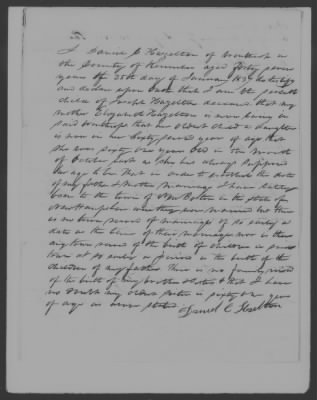 I Daniel C Hazelton of Winthrop in
the County of Kennebec aged forty seven
years the 25th day of January 1839 do testify
and declare upon oath that I am the seventh
child of Joseph Hazelton deceased that my
mother Elizabeth Hazelton is now living in
said Winthrop that her oldest child a daughter
is now in her sixty second year of age that
she was sixty one years old in the month
of October last as she has always supposed
her age to be that in order to establish the date
of my father & mothers marriage I have lately
been to the town of New Boston in the state of
New Hampshire where they were married but there
is no record of marriages of so early a
date as the time of their marriage nor is there
any town record of the birth of children in
town at so early a period as the birth of the
children of my father. There is no family record
of the birth of my brothers & sisters & that I have
no doubt my oldest sister is sixty one years
of age as above stated
Daniel C Hazelton